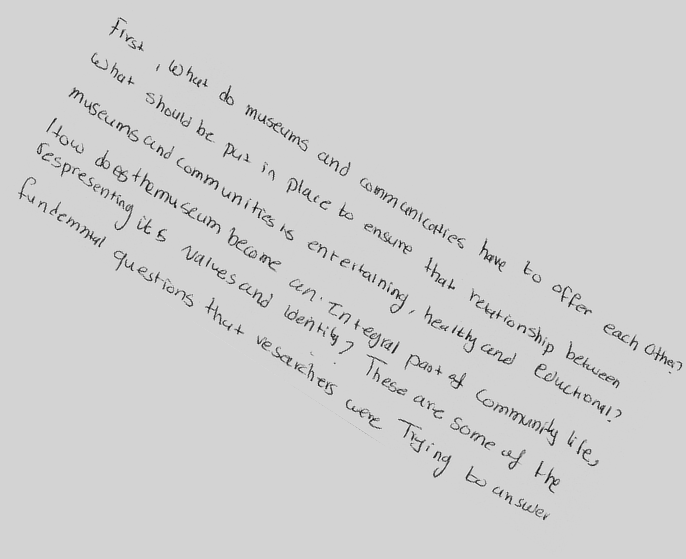 First, What do museums and communicaties have to offer each other?
What should be put in place to ensure that relationship between
museums and communities is entertaining, healthy and eductional?
How does the museum become an Integral part of Community life,
respresenting its values and identity? These are some of the
fundemntal questions that researchers were Trying to answer